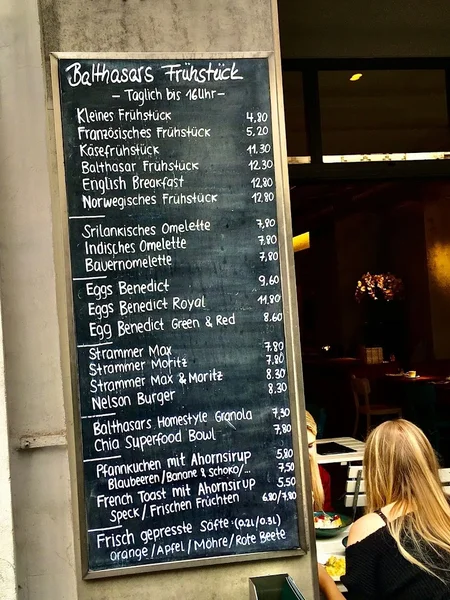 Balthasars Frühstück
- Täglich bis 16 Uhr -
Kleines Frühstück 4,80
Französisches Frühstück 5.20
Käsefrühstück 11.30
Balthasar Frühstück 12.30
English Breakfast 12,80
Norwegisches Frühstück 12,80
Srilankisches Omelette 7,80
Indisches Omelette 7,80
Bauernomelette 7,80
Eggs Benedict 9,60
Eggs Benedict Royal 11,80
Egg Benedict Green & Red 8.60
Strammer Max 7.80
Strammer Moritz 7.80
Strammer Max & Moritz 8.30
Nelson Burger 8,30
Balthasars Homestyle Granola 7,30
Chia Superfood Bowl 7,80
Pfannkuchen mit Ahornsirup 5,80
Blaubeeren/Banane & schoko/... 7,50
French Toast mit Ahornsirup 5.50
Speck/Frischen Früchten 6.80/7,80
Frisch gepresste Säfte (0.2l/0.3l)
Orange/Apfel/Möhre/Rote Beete